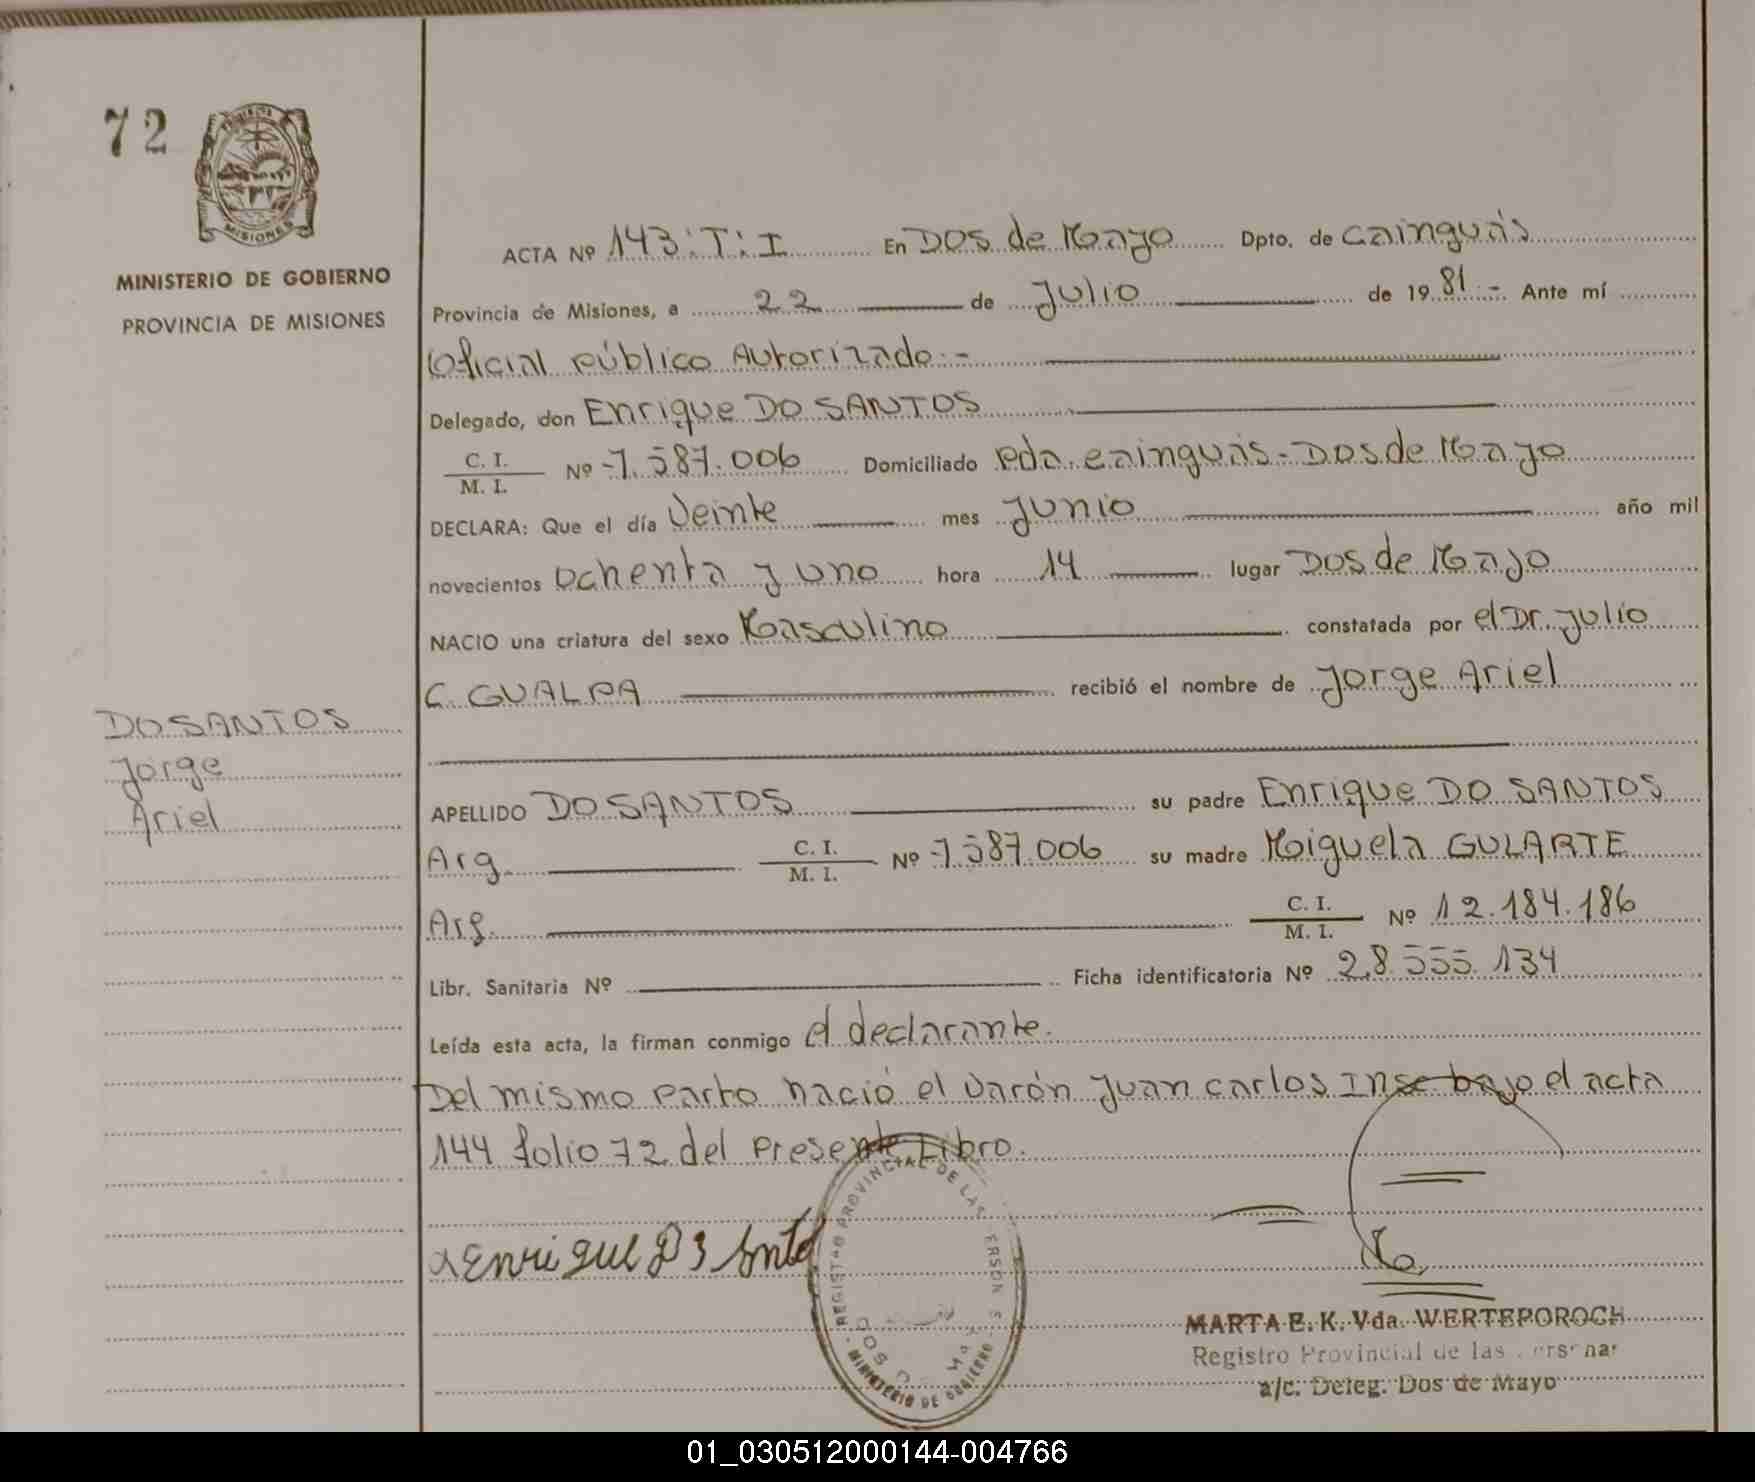 72
MISIONES
MINISTERIO DE GOBIERNO
PROVINCIA DE MISIONES
DO SANTOS
Jorge
Ariel
ACTA Nº 143:T:I En DOS de Mayo Dpto. de Cainguás
Provincia de Misiones, a 22 de Julio de 1981.- Ante mí
Oficial Público Autorizado.-
Delegado, don Enrique DO SANTOS
C. I.
M. I. Nº 7.587.006 Domiciliado Pda. cainguás - Dos de Mayo
DECLARA: Que el día Veinte mes Junio año mil
novecientos ochenta y uno hora 14 lugar Dos de Mayo
NACIO una criatura del sexo Masculino constatada por el Dr. Julio
C. GUALPA recibió el nombre de Jorge Ariel
APELLIDO DO SANTOS su padre Enrique DO SANTOS
Arg. C. I.
M. I. Nº 7.587.006 su madre Miguela GULARTE
Arg. C. I.
M. I. Nº 12.184.186
Libr. Sanitaria Nº Ficha identificatoria Nº 28.555.134
Leída esta acta, la firman conmigo el declarante.
Del mismo parto nació el varón Juan Carlos Insc bajo el acta
144 folio 72 del Presente Libro.
Enrique
REGISTRO PROVINCIAL DE LAS
MINISTERIO DE GOBIERNO
MARTA E. K. Vda. WERTEPOROCH
Registro Provincial de las
a/c. Deleg. Dos de Mayo
01_030512000144-004766